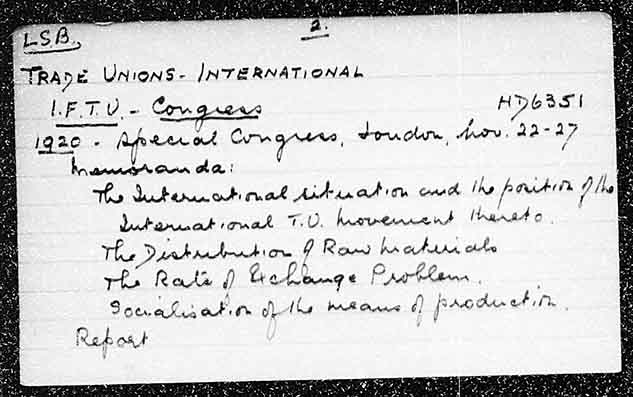 2.
L.S.B.
TRADE UNIONS - INTERNATIONAL
I.F.T.U. - Congress HD6351
1920 - Special Congress, London, Nov. 22-27
Memoranda:
The International situation and the position of the
International T.U. Movement thereto.
The Distribution of Raw Materials
The Rate of Exchange Problem.
Socialisation of the means of production.
Report